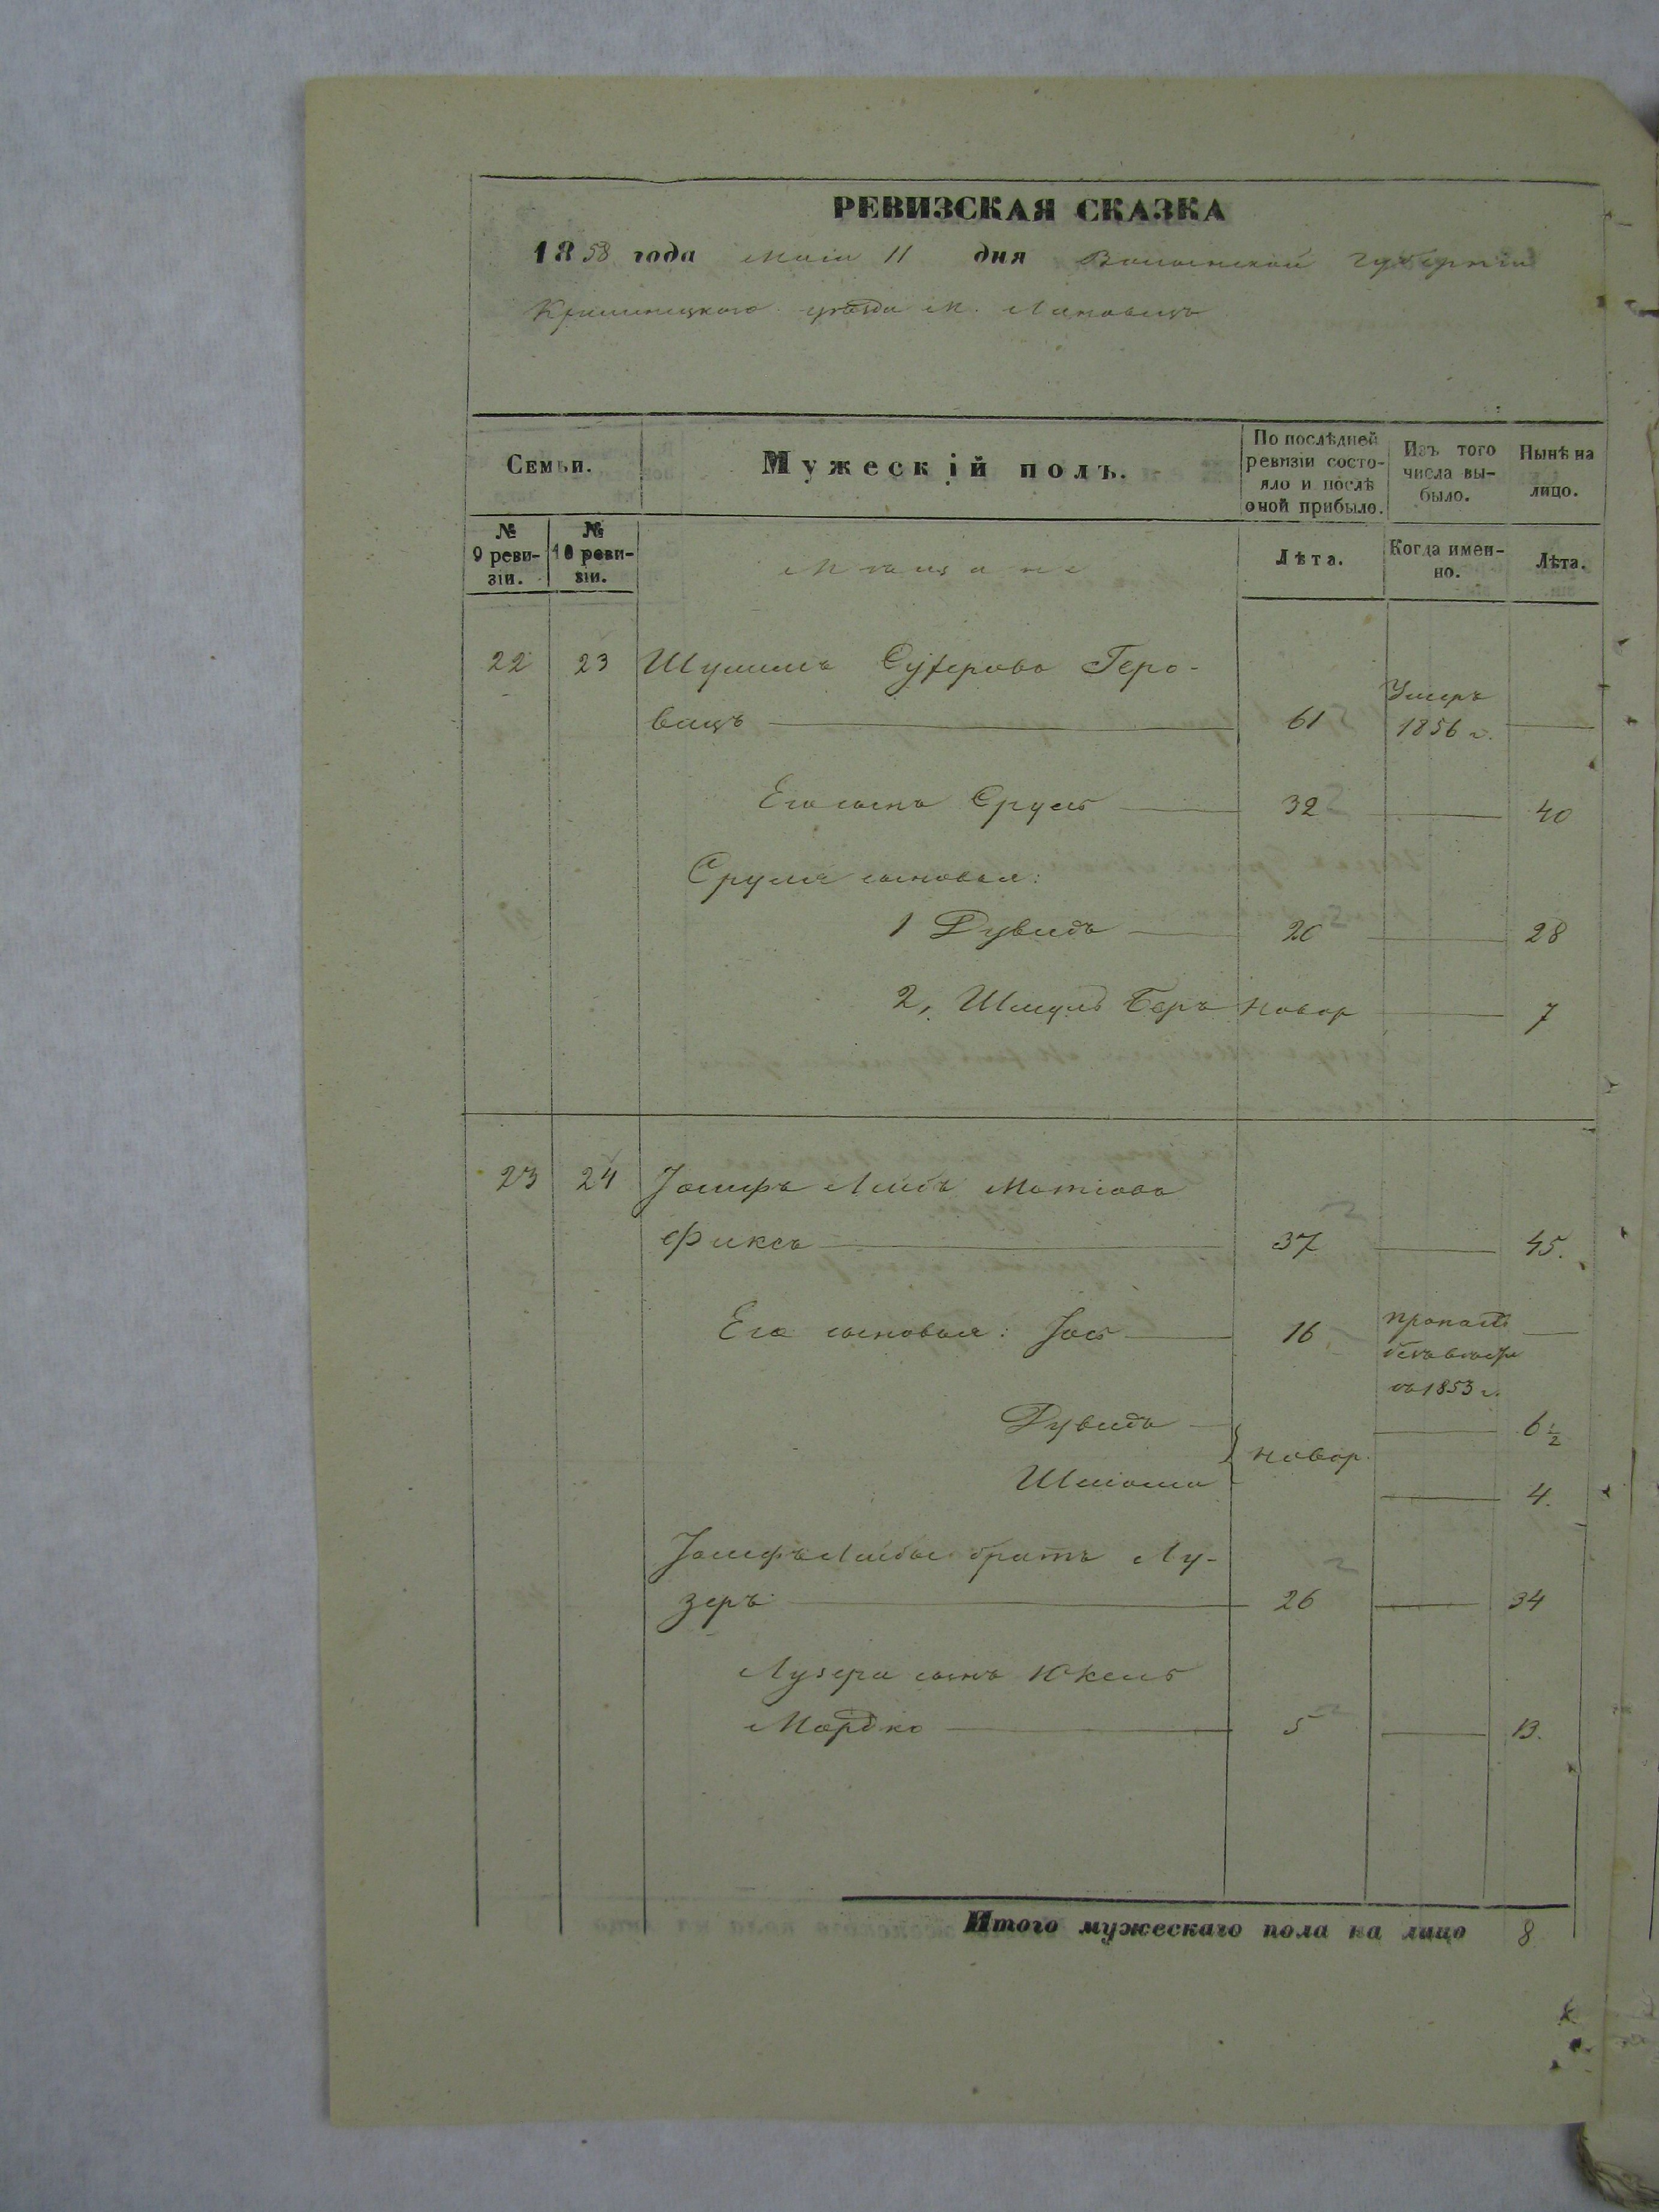 РЕВИЗСКАЯ СКАЗКА
1858 года Мая 11 дня Волынской губернiи
Кременецкого уѣзда М. Лановецъ
Семьи.
Мужескiй полъ.
По послѣдней ревизiи состояло и послѣ оной прибыло.
Изъ того числа выбыло.
Нынѣ на лицо.
№ 9 ревизiи.
№ 10 ревизiи.
Мѣщане
Лѣта.
Когда именно.
Лѣта.
22 23 Шулимъ Геро-
вацъ 61 Умеръ 1856 г.
Его сынъ Сруль 32 40
Сруля сыновья:
1 Дувидъ 20 28
2, Шмуль Беръ новор 7
23 24 Iосифъ Лейбъ Мотiово
Фиксъ 37 45.
Его сыновья: Iось 16 пропалъ
въ 1853 г.
Дувидъ 6 1/2
новор.
Шлiома 4.
Iосифъ Лейбы братъ Лу-
зеръ 26 34
Лузера сынъ Юкель
Мордко 5 13.
Итого мужескаго пола на лицо 8